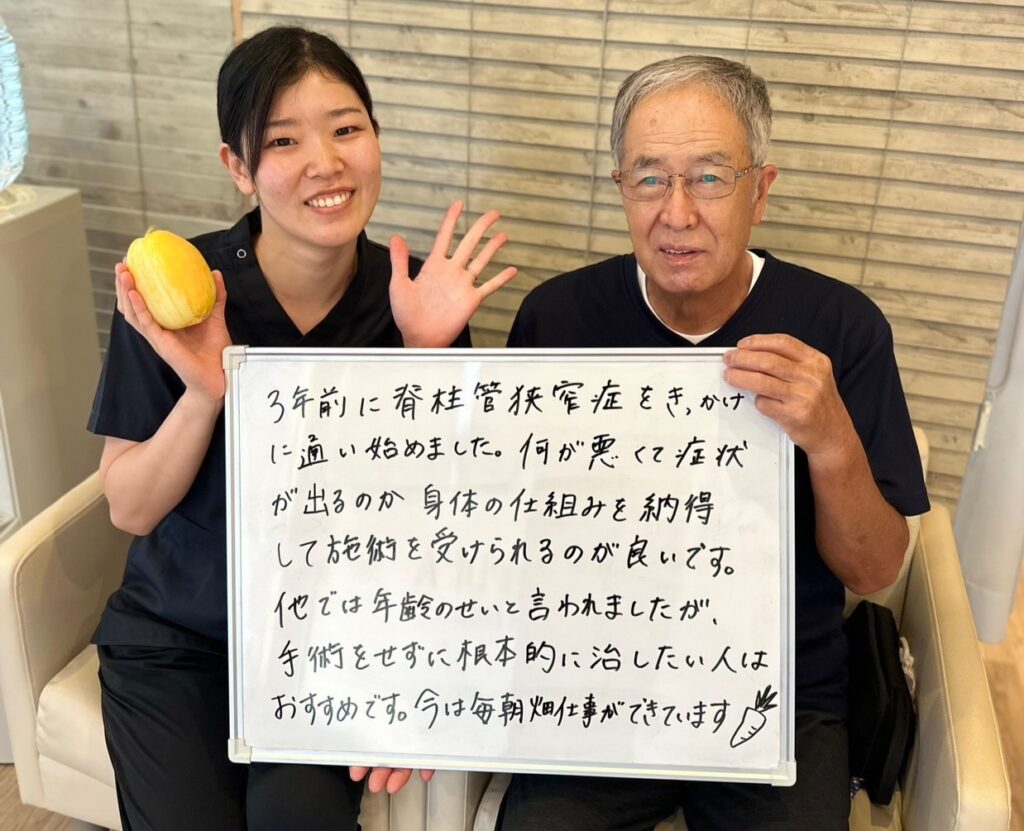 3年前に脊柱管狭窄症をきっかけ
に通い始めました。何が悪くて症状
が出るのか身体の仕組みを納得
して施術を受けられるのが良いです。
他では年齢のせいと言われましたが、
手術をせずに根本的に治したい人は
おすすめです。今は毎朝畑仕事ができています